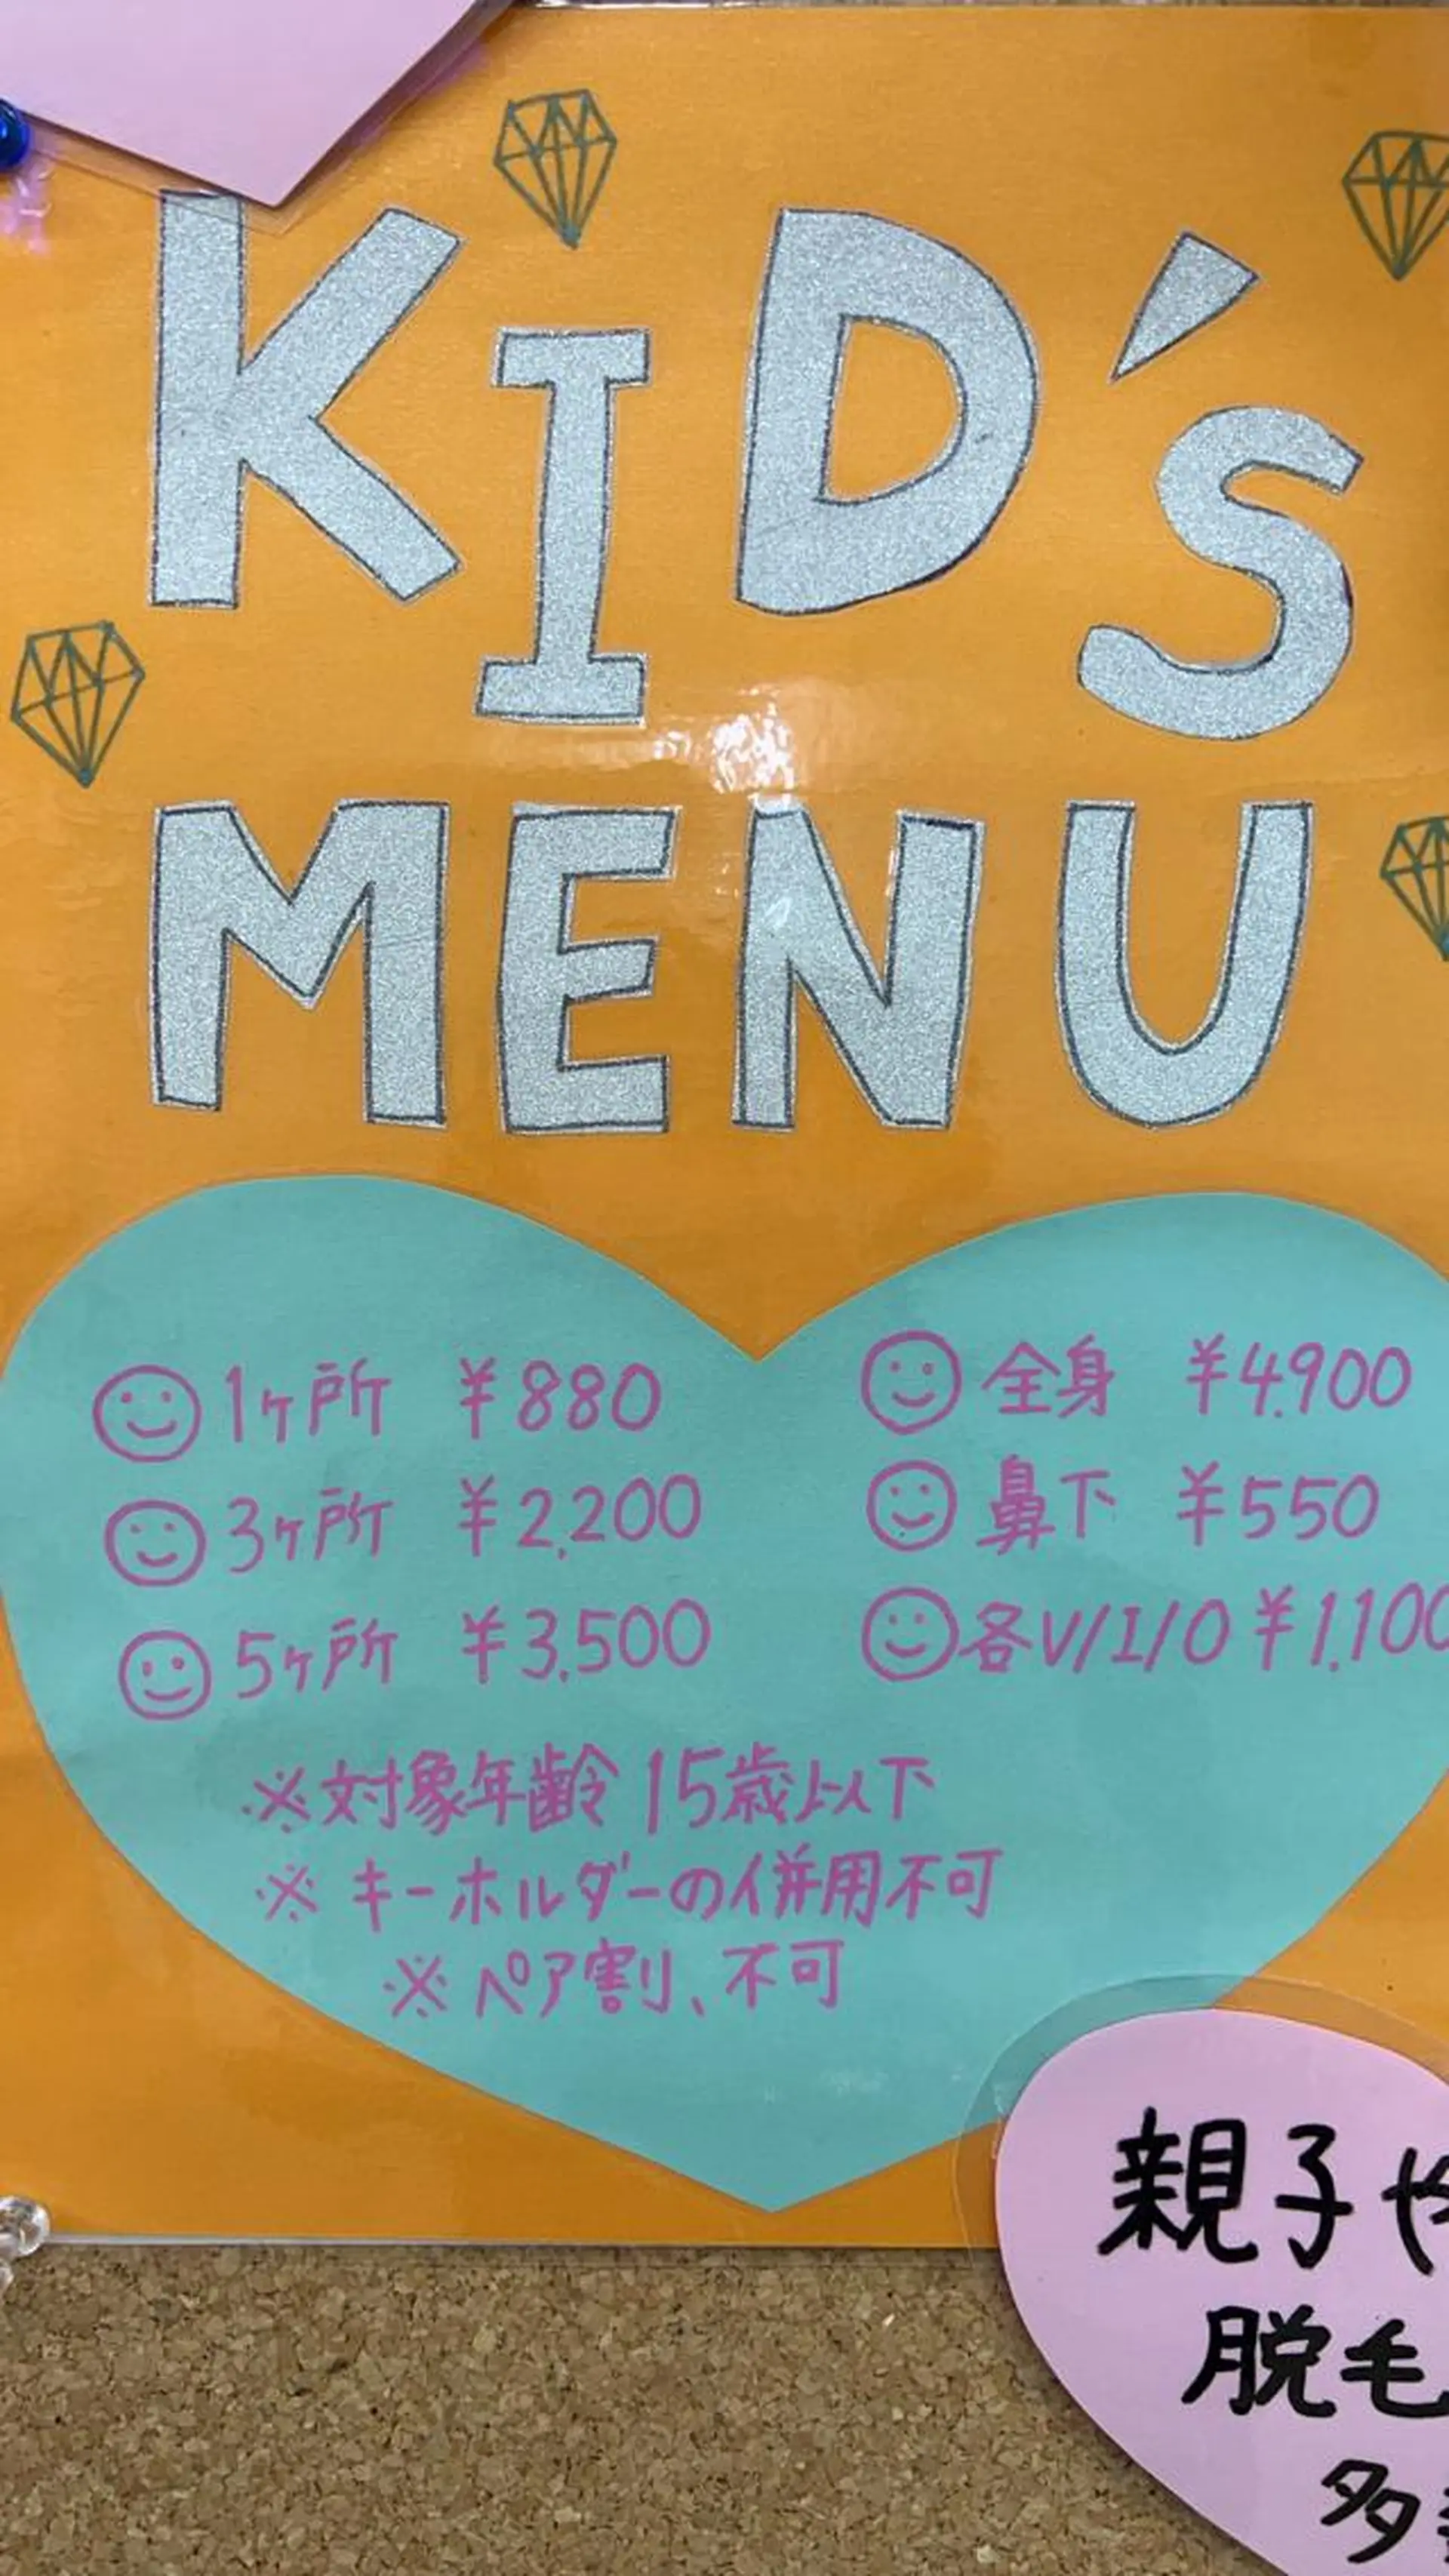 KID's
MENU
1ヶ所 ¥880
3ヶ所 ¥2,200
5ヶ所 ¥3,500
全身 ¥4,900
鼻下 ¥550
各V/I/O ¥1,100
※対象年齢 15歳以下
※ キーホルダーの併用不可
※ ペア割、不可
親子や
脱毛
多